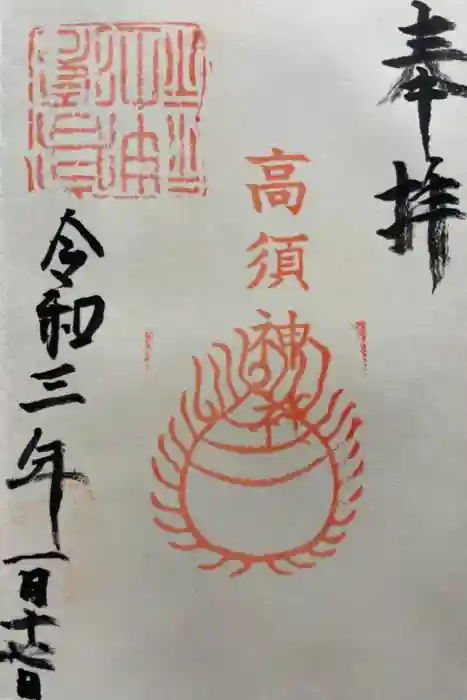 奉拝
高須神社
令和三年一月十七日